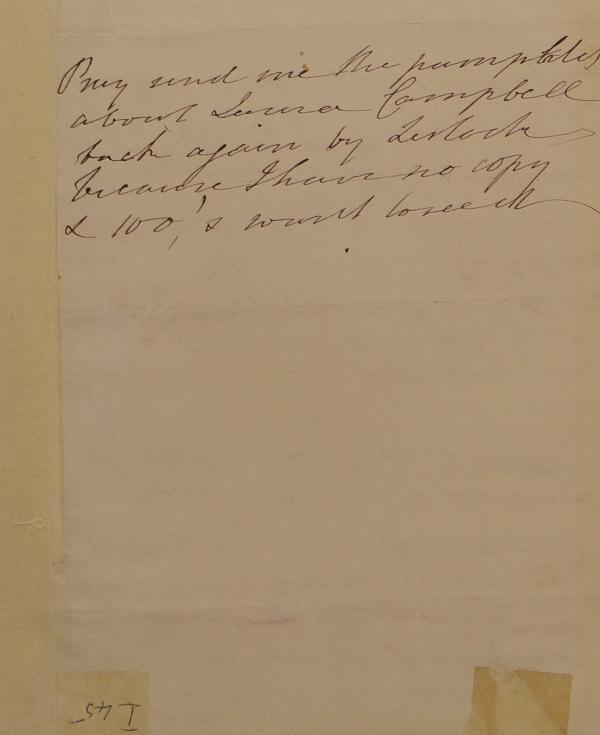 Pray send me the pamphlet
about Laura Campbell
back again by
because I have no copy
& 100's want to see it
I 45